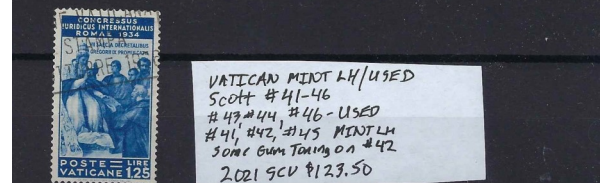 CONGRESSUS
IURIDICUS INTERNATIONALIS
ROMAE 1934
GREGORII IX PROMULGATIO
POSTE LIRE
VATICANE 1.25
VATICAN MINT LH/USED
Scott #41-46
#43, #44, #46 - USED
#41, #42, #45 MINT LH
Some Gum Toning on #42
2021 SCV $123.50